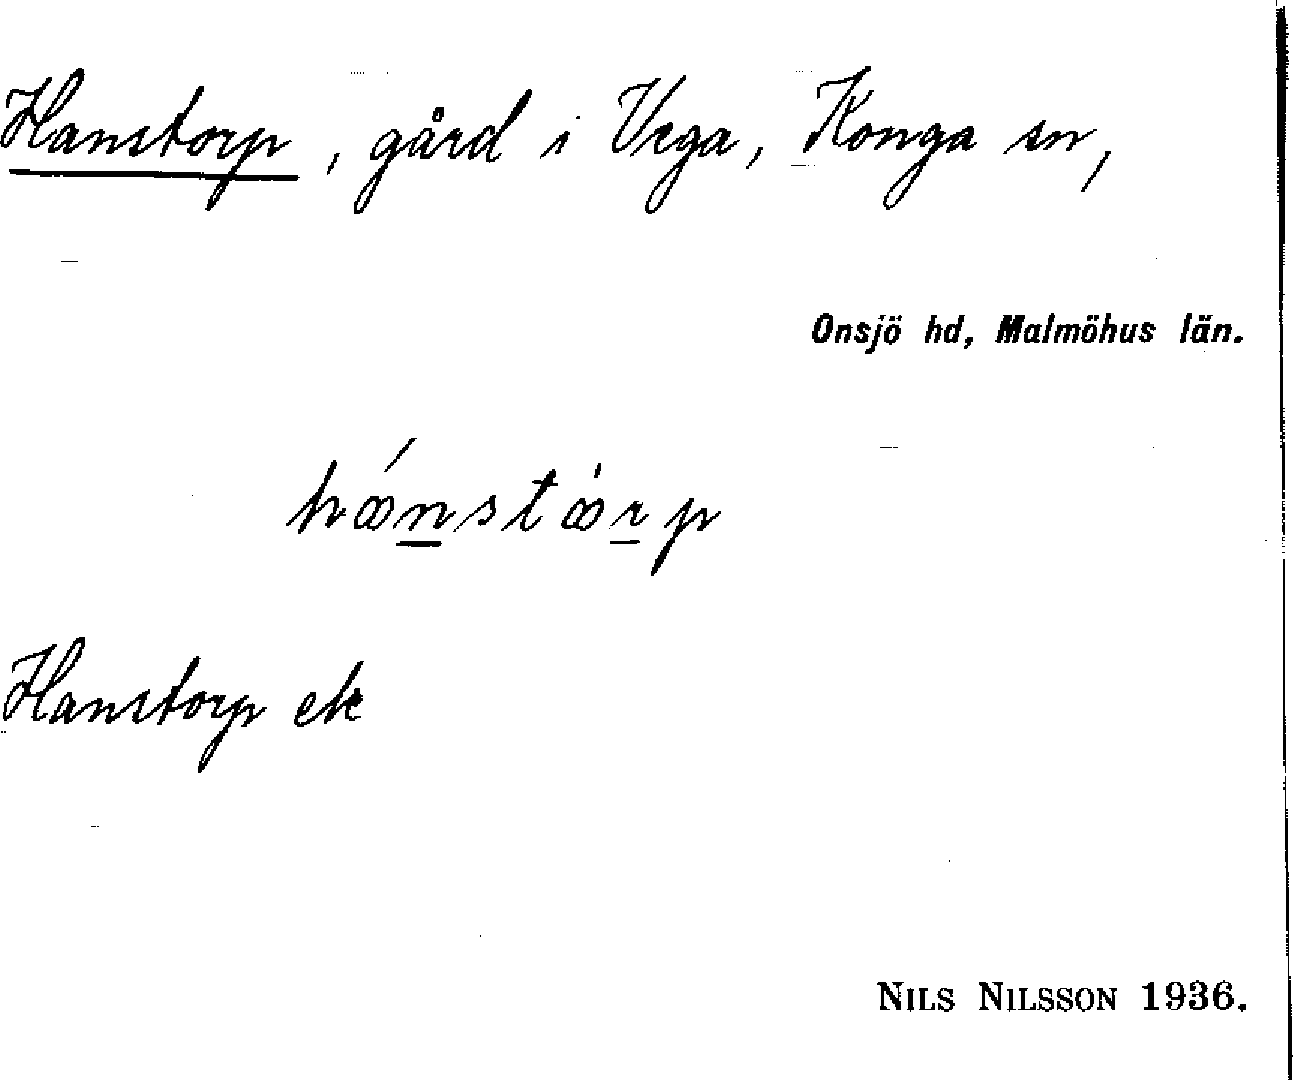 Hanstorp, gård i Vega, Konga sn,
Onsjö hd, Malmöhus län.
Hanstorp ek
NILS NILSSON 1936.